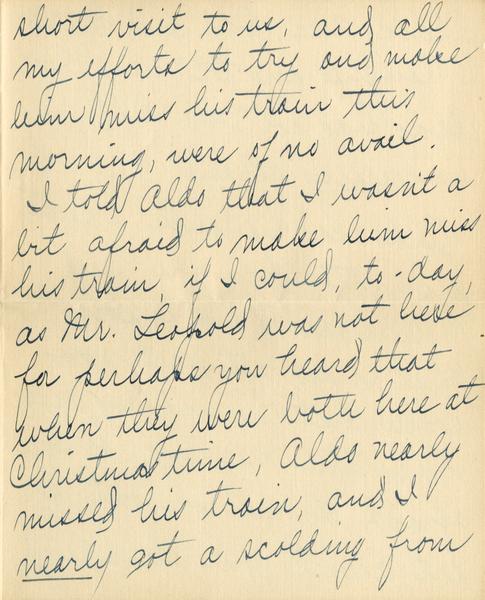 short visit to us, and all
my efforts to try and make
him miss his train this
morning, were of no avail.
I told Aldo that I wasn't a
bit afraid to make him miss
his train, if I could, to-day,
as Mr. Leopold was not here
for perhaps you heard that
when they were both here at
Christmas time, Aldo nearly
missed his train, and I
nearly got a scolding from